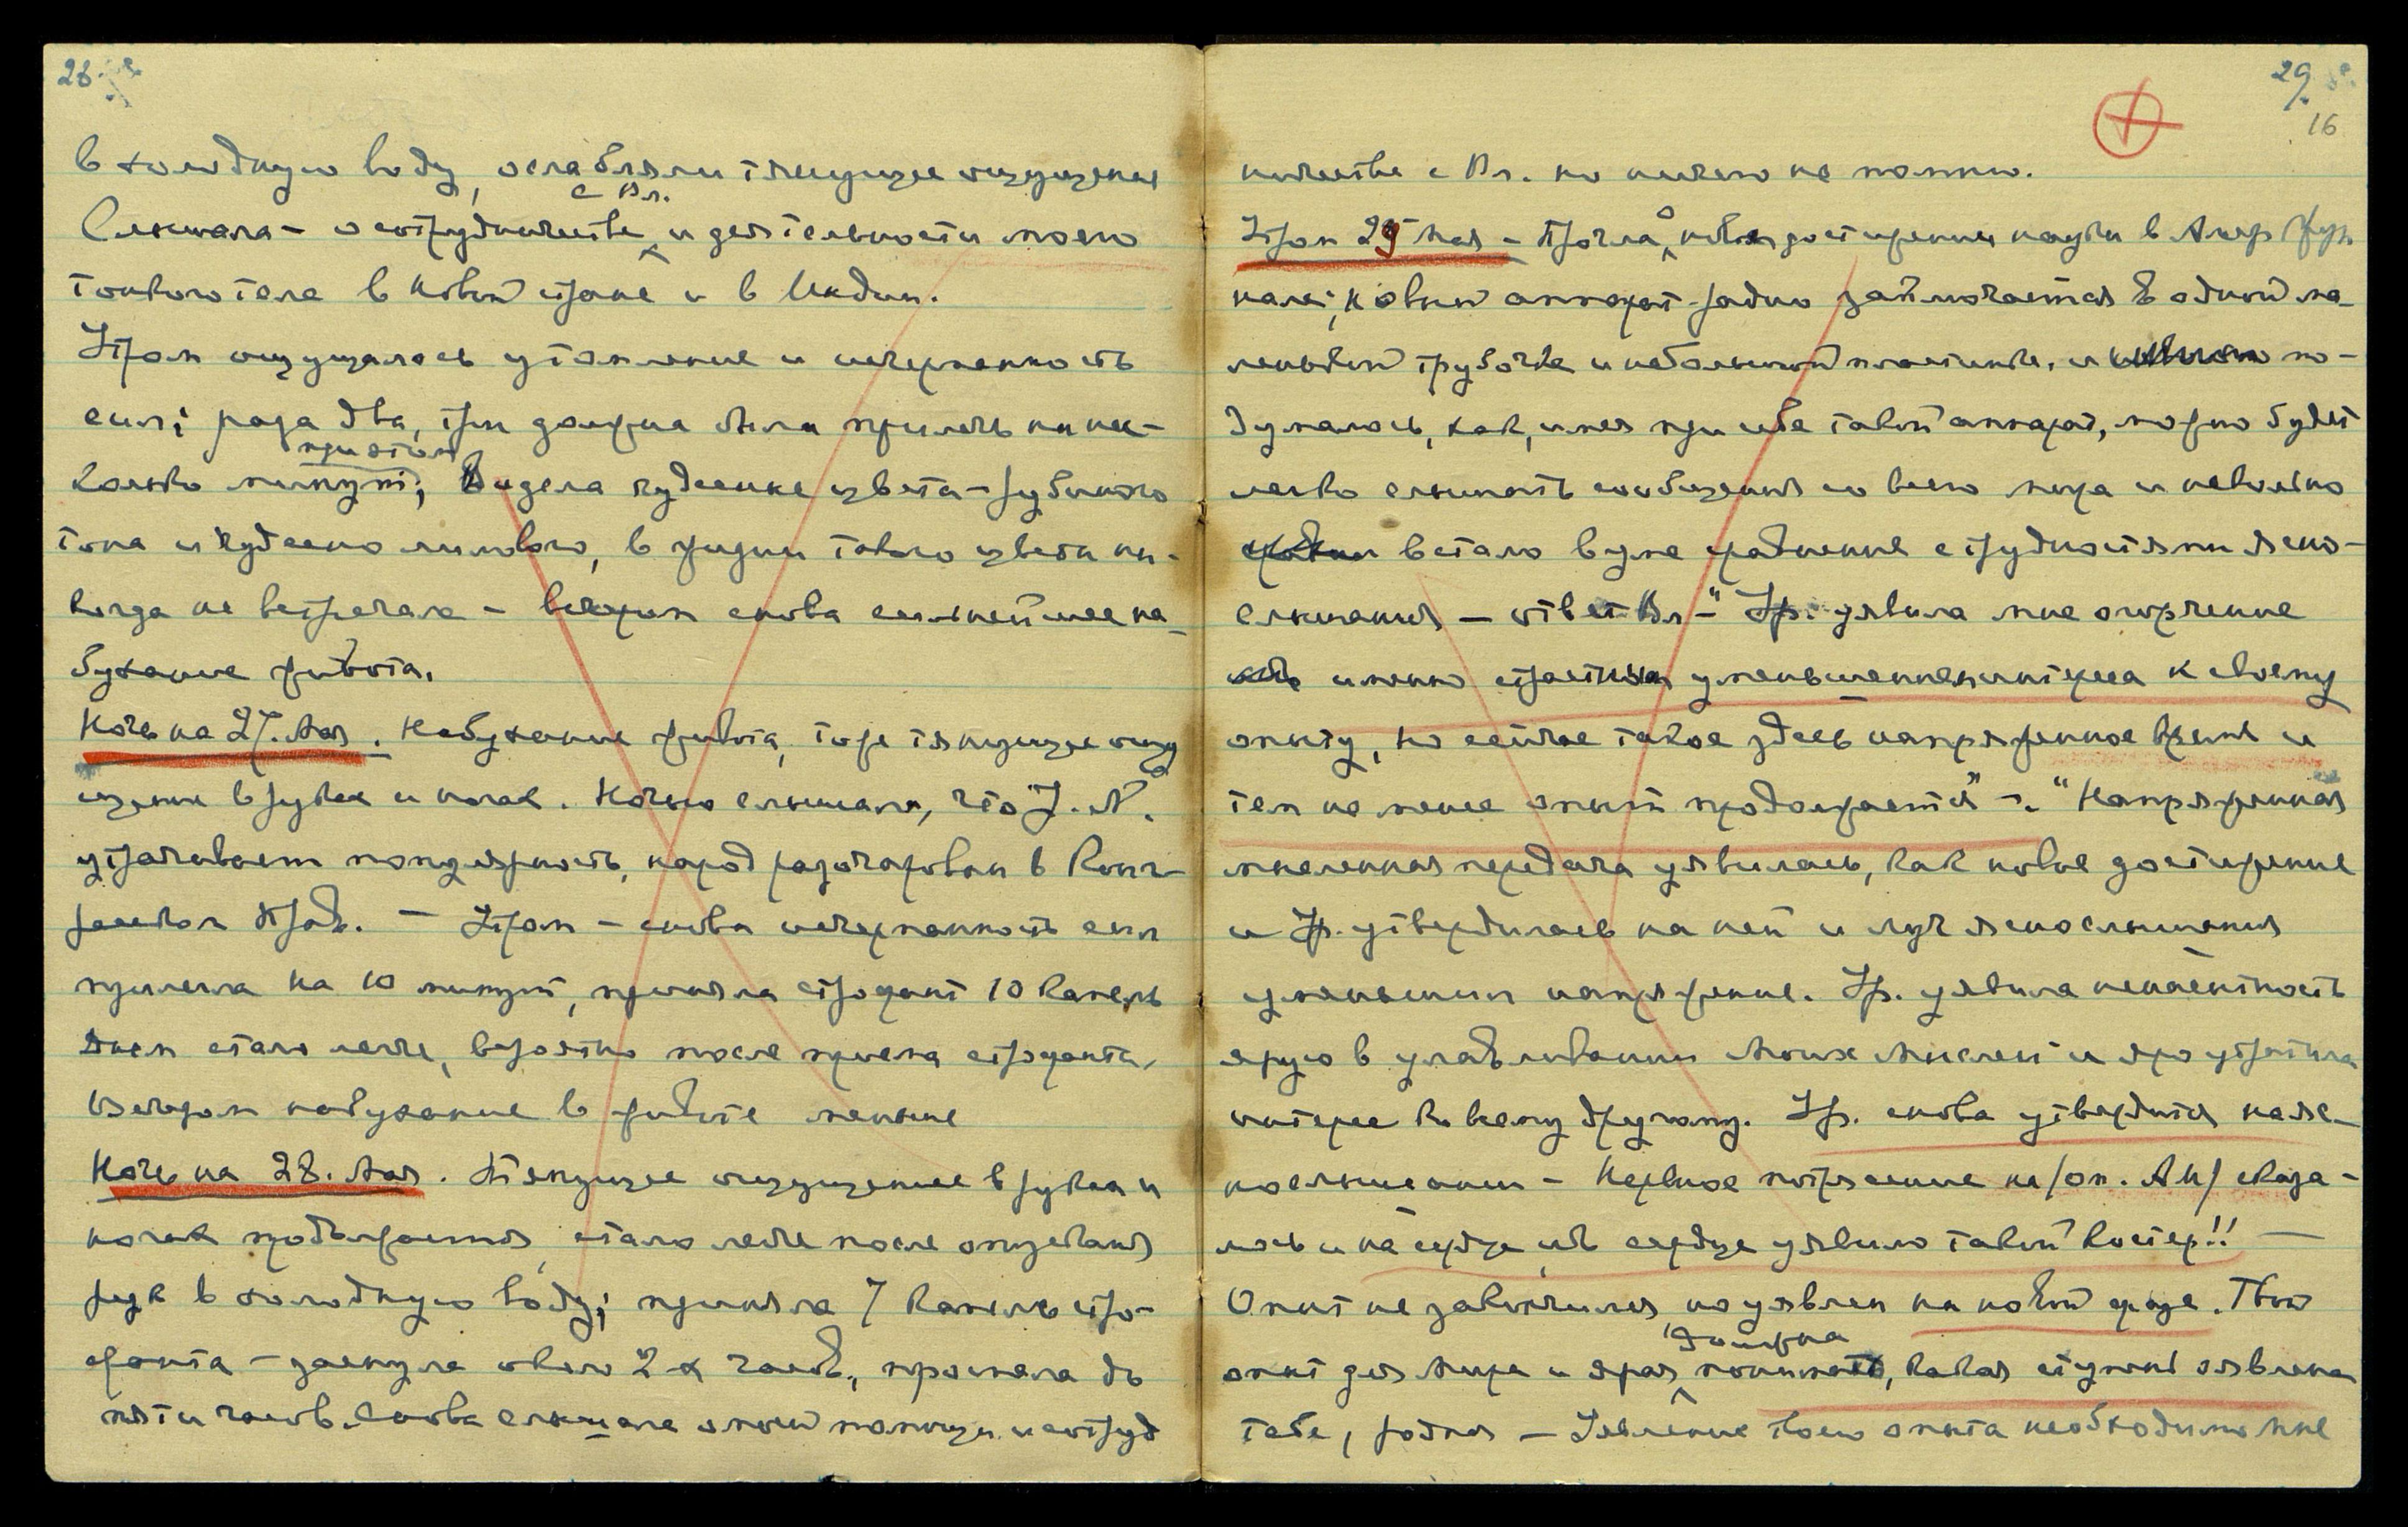 28
в холодную воду, ослабляли тянущее ощущения
с Вл.
Слышала – о сотрудничестве и деятельности моего
тонкого тела в Новой стране и в Индии.
Утром ощущалось утомление и исчерпанность
сил; раза два, три должна была прилечь на нес-
при этом
колько минут; Видела чудесные цвета – рубиного
тона и чудесно лилового, в жизни такого цвета ни-
когда не встречала – вечером снова сильнейшее на-
бухание живота.
Ночь на 27. Мая. Набухание живота, тоже тянущее ощу
щение в руках и ногах. Ночью слышала, что J. N.
утрачивает популярность, народ разочарован в Конг-
ресском Прав. – Утром – снова исчерпанность сил
прилегла на 10 минут, приняла строфант 10 капель
Днем стало легче, вероятно после приема строфанта,
Вечером набухание в животе меньше
Ночь на 28. Мая. Тянущее ощущение в руках и
ногах продолжается, стало легче после опускания
рук в холодную воду; приняла 7 капель стро-
фанта – заснула около 2-х часов, проспала до
пяти часов. Снова слышала о моей помощи и сотруд
29
16
ничестве с Вл. но ничего не помню.
Утром 29 Мая – Прочла о новом достижении науки в Амер жур
нале; новый аппарат-радио заключается в одной ма-
ленькой трубочке и небольшой пластинке, и по-
думалось, как, имея при себе такой аппарат, можно будет
легко слышать сообщения со всего мира и невольно
встало в уме сравнение с трудностями ясно-
слышания – ответ Вл – "Ур. уявила мне огорчение
именно уменьшением интереса к своему
опыту, но сейчас такое здесь напряженное время и
тем не менее опыт продолжается" –. "Напряженная
мысленная передача уявилась, как новое достижение
и Ур. утвердилась на ней и луч яснослышания
уменьшил напряжение. Ур. уявила
ярую в улавливании Моих Мыслей и яро утратила
интерес ко всему другому. Ур. снова утвердится на яс-
нослышании – Нервное потрясение на /оп. Ан/ сказа-
лось и на сердце, ибо сердце уявило такой костер!! –
Опыт не закончился, но уявлен на новой фазе. Твой
должна
опыт для Мира и ярая понимать, какая ступень оявлена
тебе, родная – Уявление твоего опыта необходимо Мне